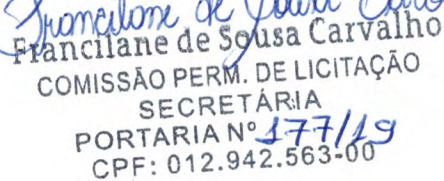 Francilane de Sousa Carvalho
Francilane de Sousa Carvalho
COMISSÃO PERM. DE LICITAÇÃO
SECRETÁRIA
PORTARIA Nº 177/19
CPF: 012.942.563-00